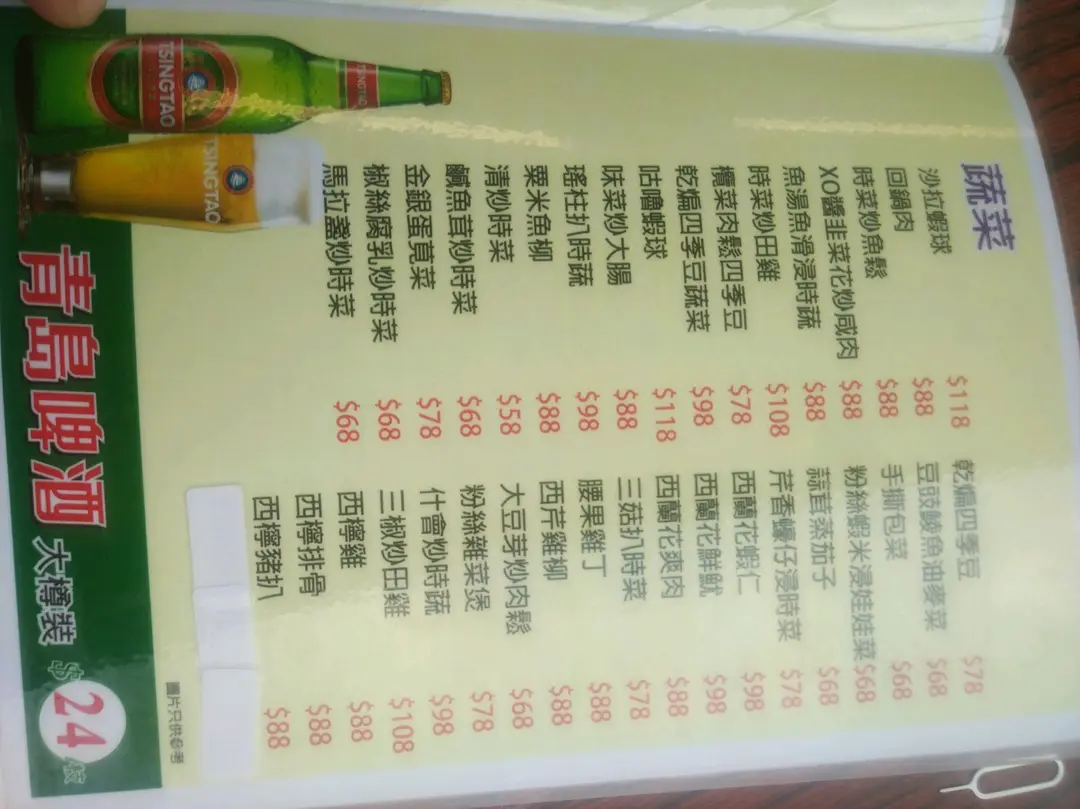 蔬菜
沙拉蝦球 $118
回鍋肉 $88
時菜炒魚鬆 $88
XO醬韭菜花炒咸肉 $88
魚湯魚滑浸時蔬 $88
時菜炒田雞 $108
欖菜肉鬆四季豆 $78
乾煸四季豆蔬菜 $98
咕嚕蝦球 $118
味菜炒大腸 $88
瑤柱扒時蔬 $98
粟米魚柳 $88
清炒時菜 $58
鹹魚茸炒時菜 $68
金銀蛋莧菜 $78
椒絲腐乳炒時菜 $68
馬拉盞炒時菜 $68
乾煸四季豆 $78
豆豉鯪魚油麥菜 $68
手撕包菜 $68
粉絲蝦米浸娃娃菜 $68
蒜茸蒸茄子 $68
芹香蠔仔浸時菜 $78
西蘭花蝦仁 $98
西蘭花鮮魷 $98
西蘭花爽肉 $88
三菇扒時菜 $78
腰果雞丁 $88
西芹雞柳 $88
大豆芽炒肉鬆 $68
粉絲雜菜煲 $78
什會炒時蔬 $98
三椒炒田雞 $108
西檸雞 $88
西檸排骨 $88
西檸豬扒 $88
圖片只供參考
TSINGTAO
TSINGTAO
TSINGTAO
青島啤酒 大樽裝 $24 枝